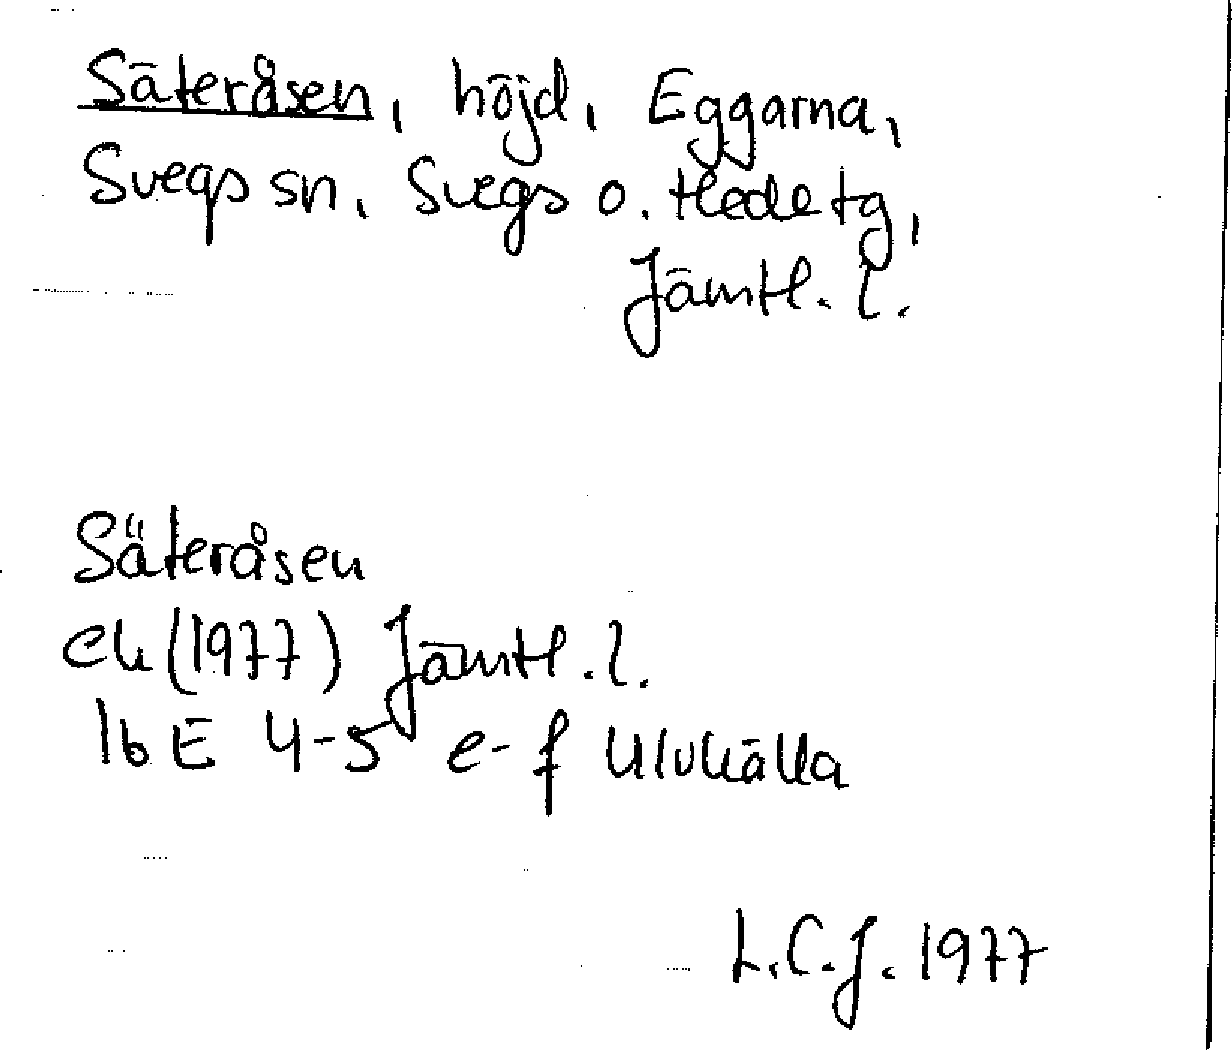 Säteråsen, höjd, Eggarna,
Svegs sn, Svegs o. Hede tg,
Jämtl. l.
Säteråsen
ek (1977) Jämtl. l.
16 E 4-5 e-f Ulvkälla
L.C.J. 1977